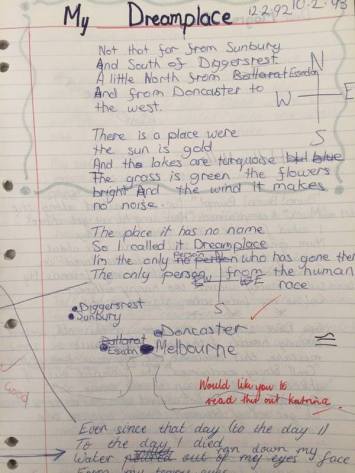 My Dreamplace
12.2.92 10.2.93
Not that far from Sunbury
And South of Diggersrest.
A little North from Ballarat Esendon
And from Doncaster to
the west.
N
W E
S
There is a place were
the sun is gold
And the lakes are turquoise but blue
The grass is green the flowers
bright And the wind It makes
no noise.
The place it has no name
So I called it Dreamplace
I'm the only no person person who has gone ther
The only person from the human
race
W E
S
Diggersrest
Sunbury
Ballarat
Esadon
Doncaster
Melbourne
Good
Would like you to
read this out Katrina.
Ever since that day (to the day I)
To the day I died
Water poured out of my eyes ran down my face